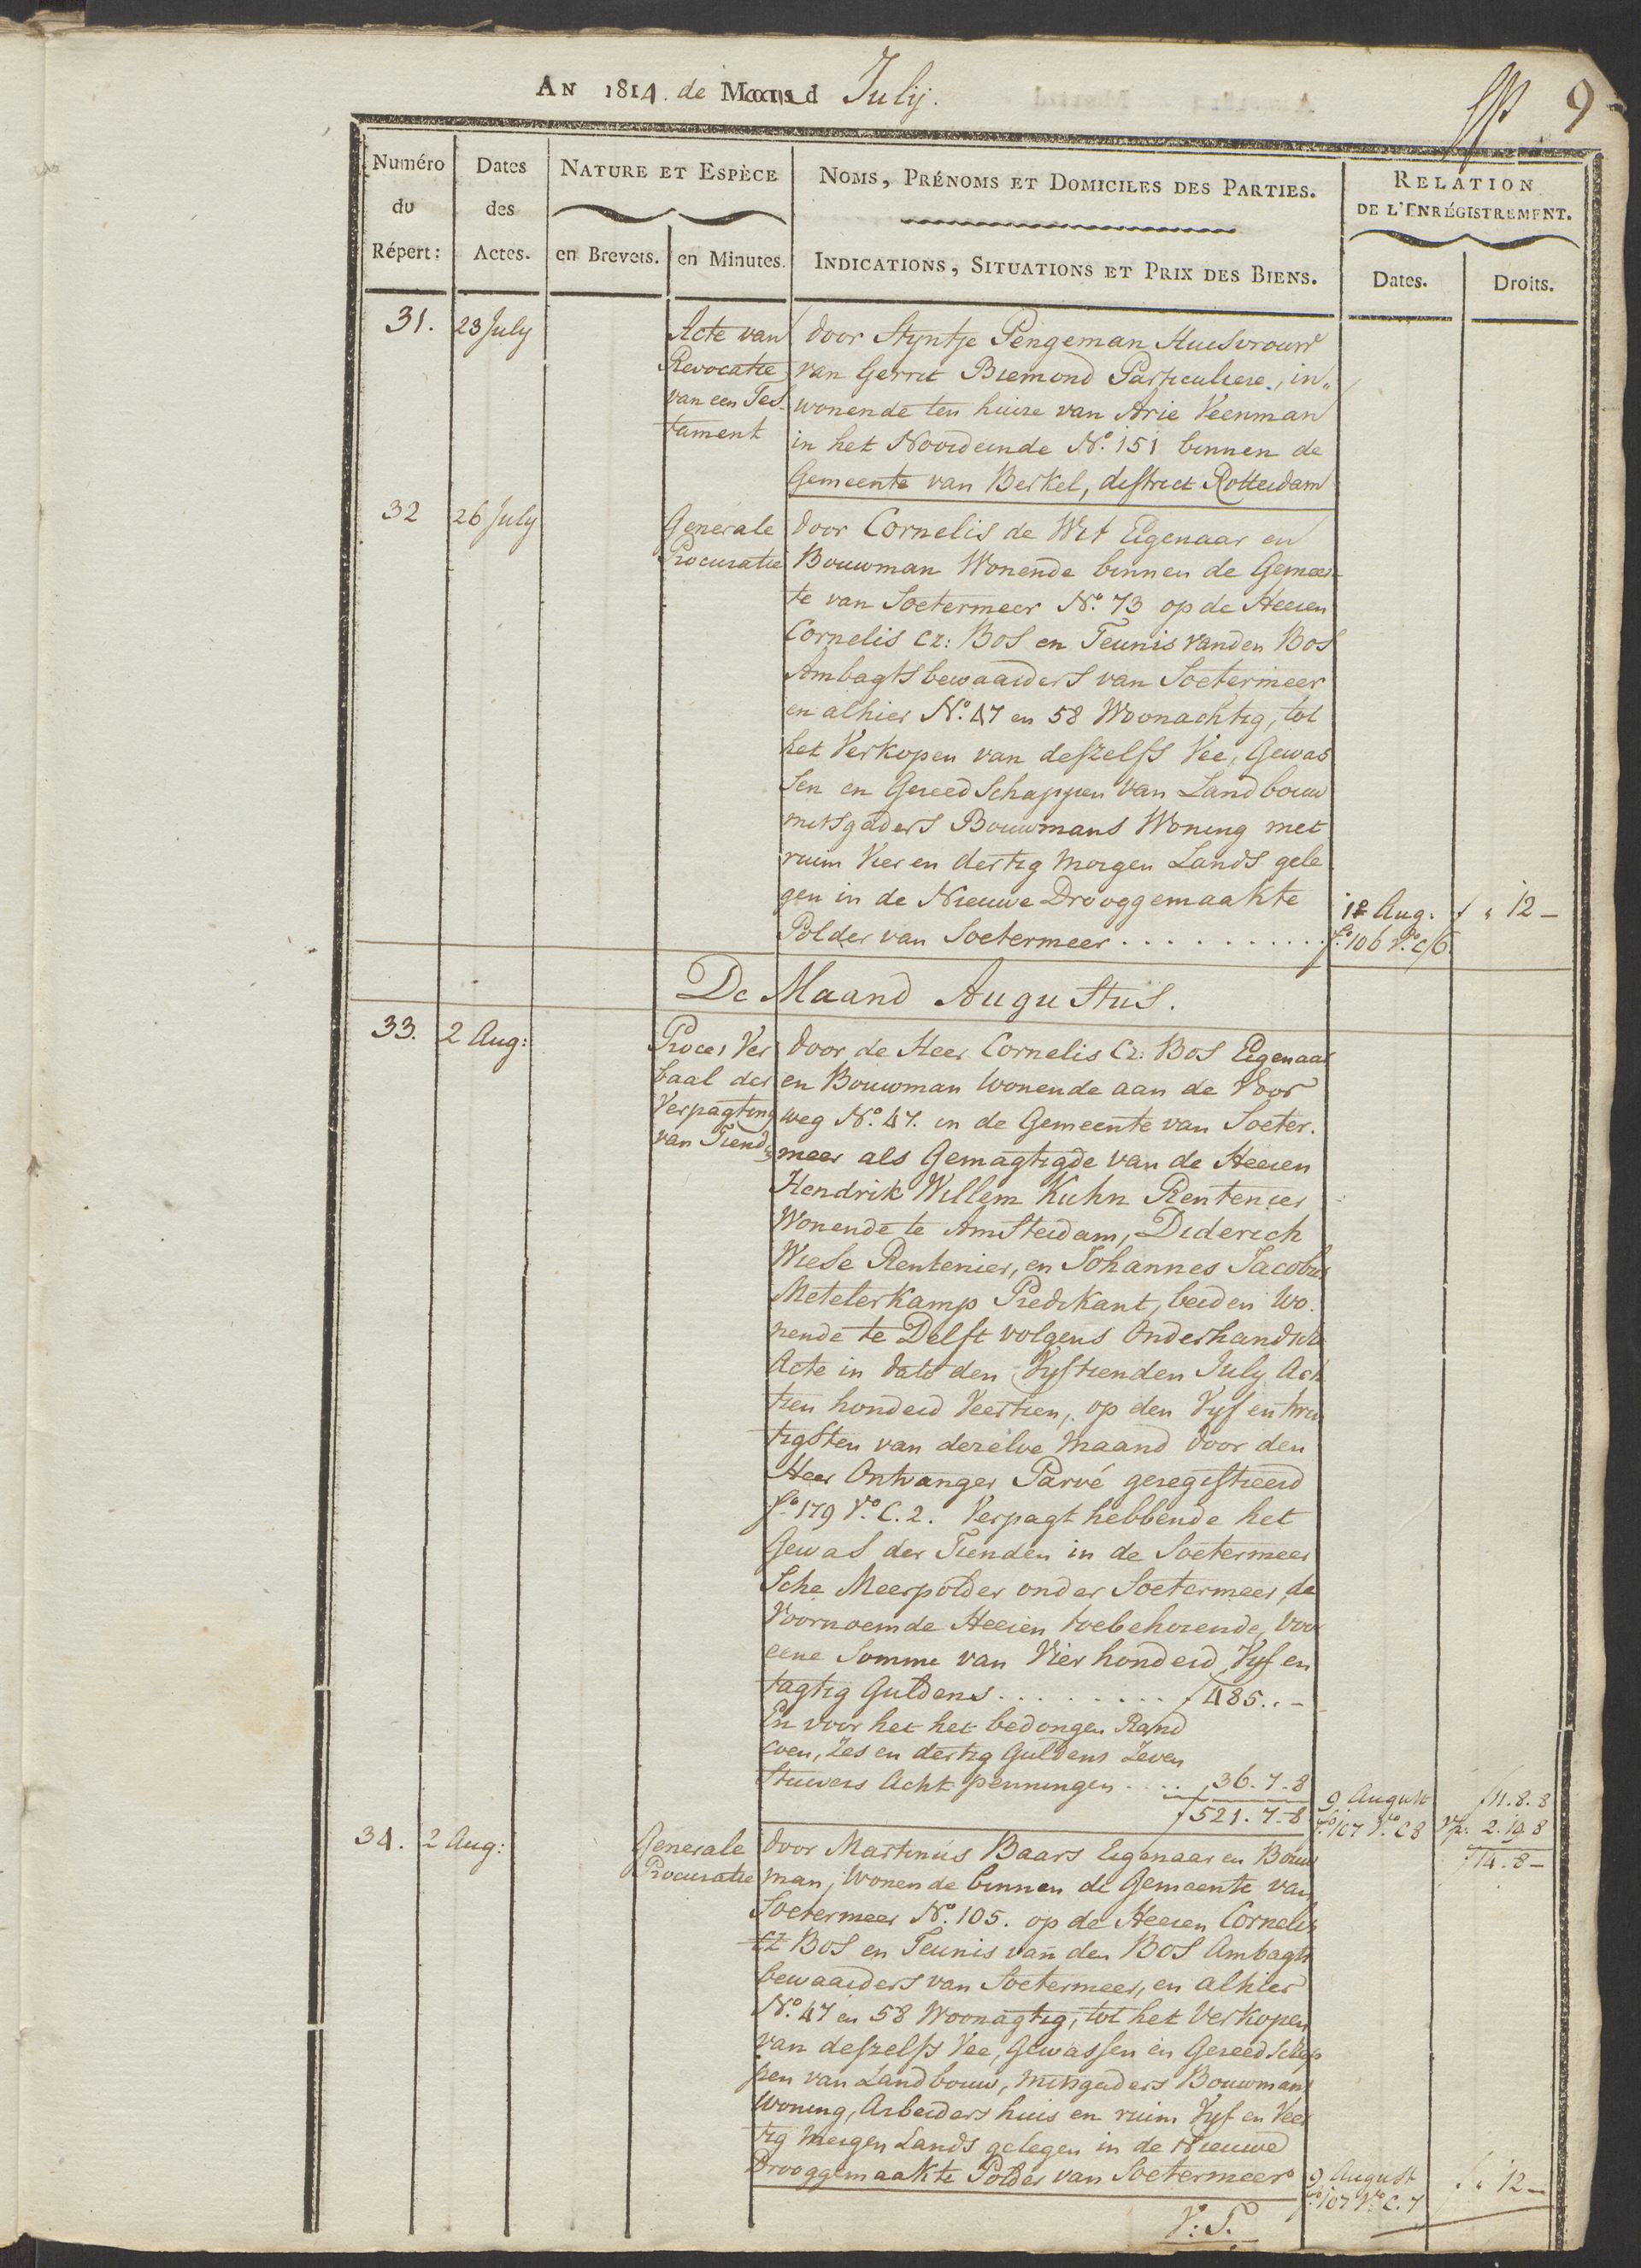 AN 1814. de Maand July.
9
Numéro du Répert:
Dates des Actes.
NATURE ET ESPÈCE
en Brevets.
en Minutes.
NOMS, PRÉNOMS ET DOMICILES DES PARTIES.
INDICATIONS, SITUATIONS ET PRIX DES BIENS.
RELATION
DE L'ENRÉGISTREMENT.
Dates.
Droits.
31. 23 July
Acte van
Revocatie
van een Tes-
tament
door Styntje Pengeman Huisvrouw
van Gerrit Biemond Particuliere, in„
wonende ten huize van Arie Veenman
in het Noordeinde No. 151 binnen de
Gemeente van Berkel, district Rotterdam
32 26 July
Generale
Procuratie
door Cornelis de Wit Eigenaar en
Bouwman Wonende binnen de Gemeen-
te van Soetermeer No. 73 op de Heeren
Cornelis Cz: Bos en Teunis vanden Bos
Ambagtsbewaarders van Soetermeer
en alhier No. 47 en 58 Woonachtig, tot
het Verkopen van deszelfs Vee, Gewas
sen en Gereedschappen van Landbouw
mitsgaders Bouwmans Woning met
ruim Vier en dertig Morgen Lands gele
gen in de Nieuwe Drooggemaakte
Polder van Soetermeer . . . . . . . . . . .
12 Aug.
fo. 106 Vo. C/6.
ƒ „ 12 –
De Maand Augustus.
33. 2 Aug:
Proces Ver
baal der
Verpagting
van Tiend
door de Heer Cornelis Cz: Bos Eigenaar
en Bouwman Wonende aan de Voor
weg No. 47. in de Gemeente van Soeter.
meer als Gemagtigde van de Heeren
Hendrik Willem Kuhn Rentenier
Wonende te Amsterdam, Diderich
Wiese Rentenier, en Johannes Jacobus
Metelerkamp Predikant, beiden Wo.
nende te Delft volgens Onderhandsche
Acte in dato den Vyftienden July Ach
tien honderd Veertien, op den Vyf en twin
tigsten van dezelve Maand door den
Heer Ontvanger Parvé geregistreerd
fo. 179 Vo. C. 2. Verpagt hebbende het
Gewas der Tienden in de Soetermeer
Sche Meerpolder onder Soetermeer, de
Voornoemde Heeren toebehorende, voor
eene Somme van Vier honderd Vyf en
tagtig Guldens . . . . . . . . . ƒ 485 .. –
En voor het het bedongen Rand
coen, Zes en dertig Guldens Zeven
Stuivers Acht penningen . . . . 36 . 7 – 8
ƒ 521 . 7 – 8
9 August
fo. 107 Vo. C8
ƒ 11 . 8 . 8
2 . 19 8
ƒ 14 . 8 –
34. 2 Aug:
Generale
Procuratie
door Martinus Baars Eigenaar en Bouw
man, Wonende binnen de Gemeente van
Soetermeer No. 105. op de Heeren Cornelis
Cz Bos en Teunis van den Bos Ambagts
bewaarders van Soetermeer, en alhier
No. 47 en 58 Woonagtig, tot het Verkopen
van deszelfs Vee, Gewassen en Gereedschap
pen van Landbouw, mitsgaders Bouwmans
Woning, Arbeiders huis en ruim Vyf en Veer
tig Morgen Lands gelegen in de Nieuwe
Drooggemaakte Polder van Soetermeer
9 August
fo. 107 Vo. C. 7
ƒ „ 12 –
V: T.